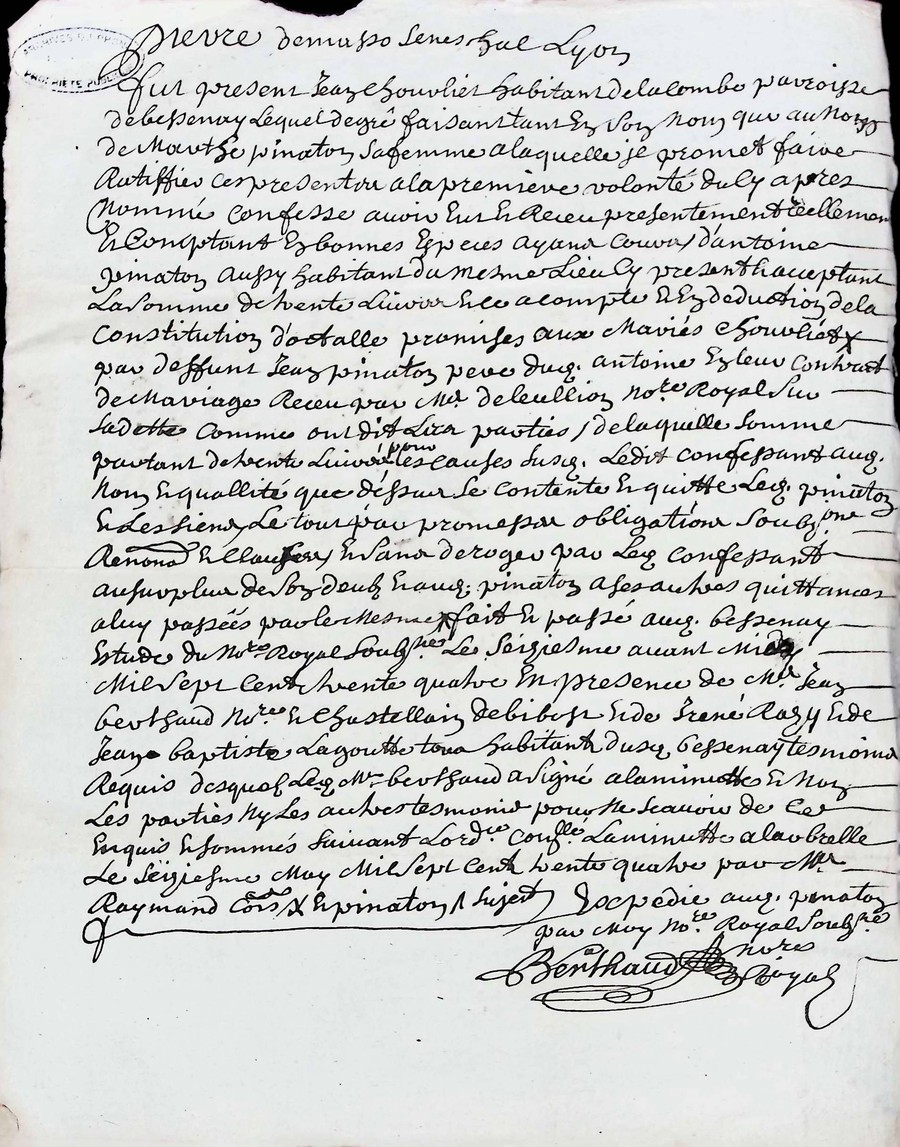 ARCHIVES DU
PROPRIETE PUBLI
Pierre demasso seneschal Lyon
Fut present Jean Chouvliet habitant delacombe parroisse
debessenay Lequel degré faisant tant En son Nom que au Nom
de Marthe pinaton safemme alaquelle il promet faire
Ratiffier cespresentes alapremiere volonté du Cy apres
Nommé confesse avoir Eut et Receu presentement réellement
Et Comptant En bonnes Especes ayans cours d'antoine
pinaton aussy habitant du mesme Lieu Cy present & acceptant
La somme de trente Livres Et ce acompte et En deduction de la
Constitution dotalle promises aux Mariés Chouvliet X
par deffunt Jean pinaton pere duq. antoine En leur Contract
de Mariage Receu par Me. deleullion No.re Royal Sur
Sa dette comme ont dit Lesd. parties / de laquelle somme
partant de trente Livres pour les causes susq. Ledit confessant auq.
Nom Et quallité que dessus se contente Et quitte Leq. pinaton
Et Les siens, Le tout par promesses obligations soubz
Renond. Et clauses, En sans deroger par Leq. confessant
au surplus de son deub Et auq. pinaton a ses autres quittances
a luy passées par le Mesme X fait Et passé auq. bessenay
Estude du No.re Royal soubz.né Le seiziesme avant Midy
Mil Sept Cent trente quatre En presence de Me. Jean
berthaud No.re Et Chastellain debibost Et de Irené Razy Et de
Jean baptiste Lagoutte tous habitants dusq. bessenay tesmoins
Requis desquels Leq. Me. berthaud a signé a la minutte Et Non
Les parties Ny Les autres tesmoins pour Ne scavoir de Ce
Enquis Et sommés suivant Lord.ce Coll.e La minutte a larbrelle
Le seiziesme May Mil Sept Cent trente quatre par Mr.
Raymand X Et pinaton / sujet Expedié auq. pinaton
par Moy No.re Royal soubz.né
Berthaud nores
Royal